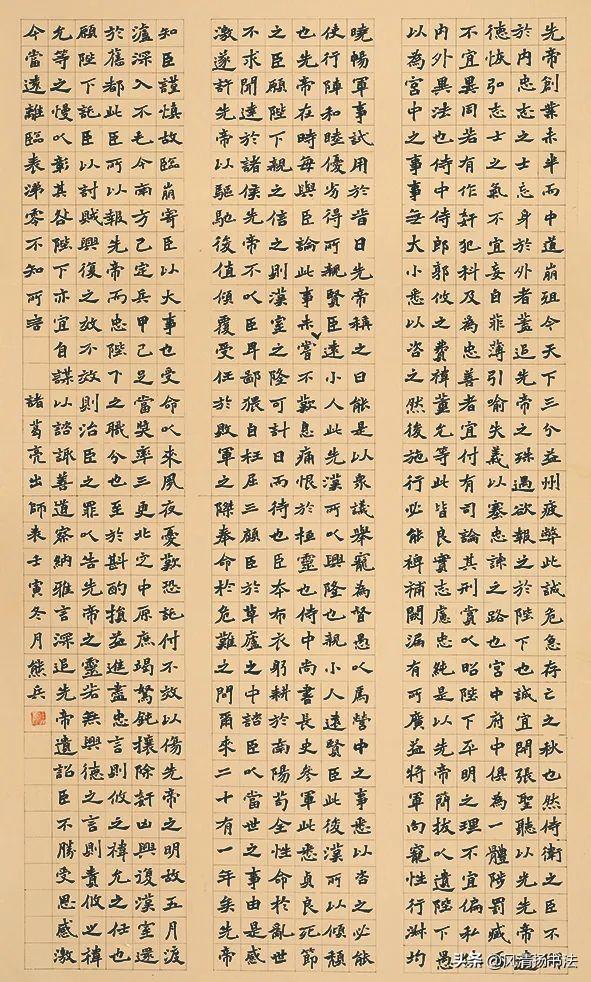 先帝創業未半而中道崩殂今天下三分益州疲弊此誠危急存亡之秋也然侍衛之臣不懈
於內忠志之士忘身於外者蓋追先帝之殊遇欲報之於陛下也誠宜開張聖聽以光先帝遺
德恢弘志士之氣不宜妄自菲薄引喻失義以塞忠諫之路也宮中府中俱為一體陟罰臧否
不宜異同若有作奸犯科及為忠善者宜付有司論其刑賞以昭陛下平明之理不宜偏私使
內外異法也侍中侍郎郭攸之費禕董允等此皆良實志慮忠純是以先帝簡拔以遺陛下愚
以為宮中之事事無大小悉以咨之然後施行必能裨補闕漏有所廣益將軍向寵性行淑均
曉暢軍事試用於昔日先帝稱之曰能是以眾議舉寵為督愚以為營中之事悉以咨之必能
使行陣和睦優劣得所親賢臣遠小人此先漢所以興隆也親小人遠賢臣此後漢所以傾頹
也先帝在時每與臣論此事未嘗不歎息痛恨於桓靈也侍中尚書長史參軍此悉貞良死節
之臣願陛下親之信之則漢室之隆可計日而待也臣本布衣躬耕於南陽苟全性命於亂世
不求聞達於諸侯先帝不以臣卑鄙猥自枉屈三顧臣於草廬之中諮臣以當世之事由是感
激遂許先帝以驅馳後值傾覆受任於敗軍之際奉命於危難之間爾來二十有一年矣先帝
知臣謹慎故臨崩寄臣以大事也受命以來夙夜憂歎恐託付不效以傷先帝之明故五月渡
瀘深入不毛今南方已定兵甲已足當獎率三軍北定中原庶竭駑鈍攘除奸凶興復漢室還
於舊都此臣所以報先帝而忠陛下之職分也至於斟酌損益進盡忠言則攸之禕允之任也
願陛下託臣以討賊興復之效不效則治臣之罪以告先帝之靈若無興德之言則責攸之禕
允等之慢以彰其咎陛下亦宜自謀以諮諏善道察納雅言深追先帝遺詔臣不勝受恩感激
今當遠離臨表涕零不知所言 諸葛亮出師表壬寅冬月熊兵
头条 @风清扬书法